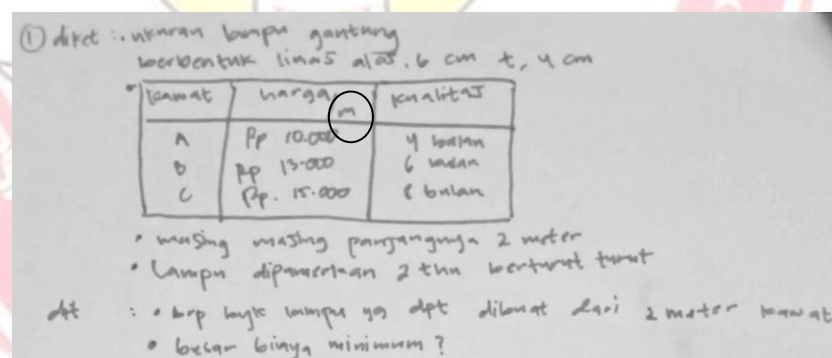 ① diket : . ukuran lampu gantung
berbentuk limas alas, 6 cm t, 4 cm
• kawat harga m kualitas
A Rp 10.000 4 bulan
B Rp 13.000 6 bulan
C Rp. 15.000 8 bulan
• masing masing panjangnya 2 meter
• Lampu dipamerkan 2 thn berturut turut
dit : • brp byk lampu yg dpt dibuat dari 2 meter kawat
• besar biaya minimum ?